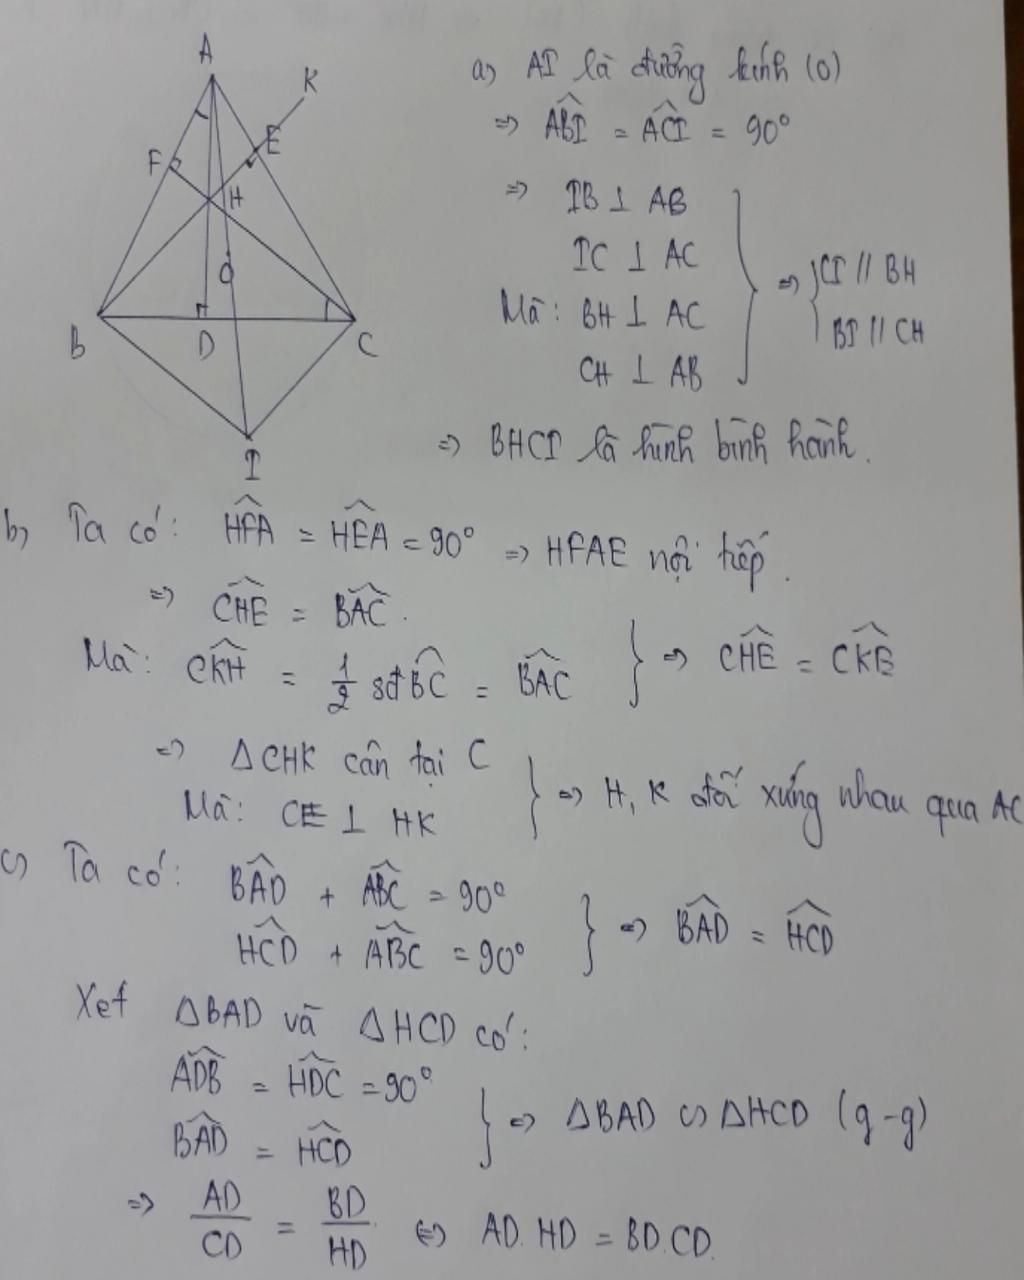 A
K
F
E
H
O
B
D
C
I
a) AI là đường kính (O)
⇒ \widehat{ABI} = \widehat{ACI} = 90°
⇒ IB ⊥ AB
IC ⊥ AC
Mà: BH ⊥ AC
CH ⊥ AB
⇒ { CI // BH
BI // CH
⇒ BHCI là hình bình hành.
b) Ta có: \widehat{HFA} = \widehat{HEA} = 90° ⇒ HFAE nội tiếp.
⇒ \widehat{CHE} = \widehat{BAC}.
Mà: \widehat{CKH} = \frac{1}{2} sđ \widehat{BC} = \widehat{BAC} } ⇒ \widehat{CHE} = \widehat{CKE}
⇒ ΔCHK cân tại C
Mà: CE ⊥ HK } ⇒ H, K đối xứng nhau qua AC
c) Ta có: \widehat{BAD} + \widehat{ABC} = 90°
\widehat{HCD} + \widehat{ABC} = 90° } ⇒ \widehat{BAD} = \widehat{HCD}
Xét ΔBAD và ΔHCD có:
\widehat{ADB} = \widehat{HDC} = 90°
\widehat{BAD} = \widehat{HCD} } ⇒ ΔBAD ∽ ΔHCD (g-g)
⇒ \frac{AD}{CD} = \frac{BD}{HD} ⇔ AD.HD = BD.CD.